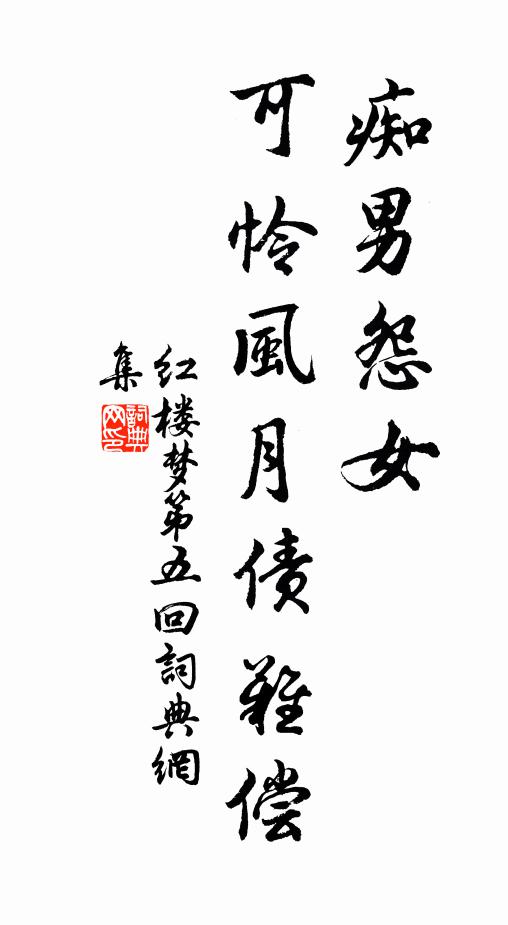 痴男怨女
可怜風月债難偿
红楼梦第五回詞典網
集
詞典网印